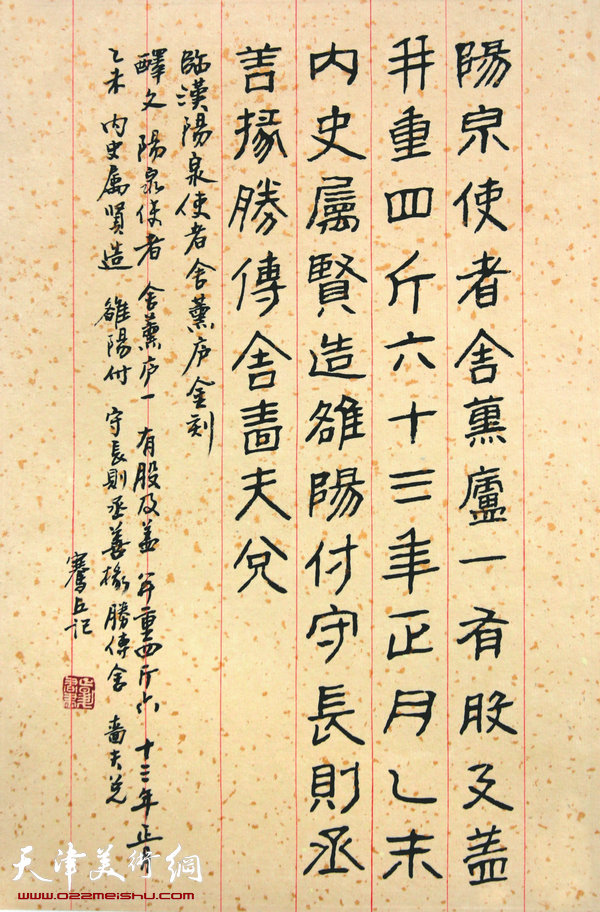 陽泉使者舍薰廬一有般及蓋
并重四斤六十三年正月乙未
内史屬賢造雒陽付守長則丞
善掾勝傳舍嗇夫兌
臨漢陽泉使者舍薰庐金刻
醳文 陽泉使者 舍薰庐一 有股及盖 并重四斤六 十三年正月
乙未 内史属賢造 雒陽付 守長則丞善掾勝傳舍 嗇夫兑
丘记
天津美術網
www.022meishu.com